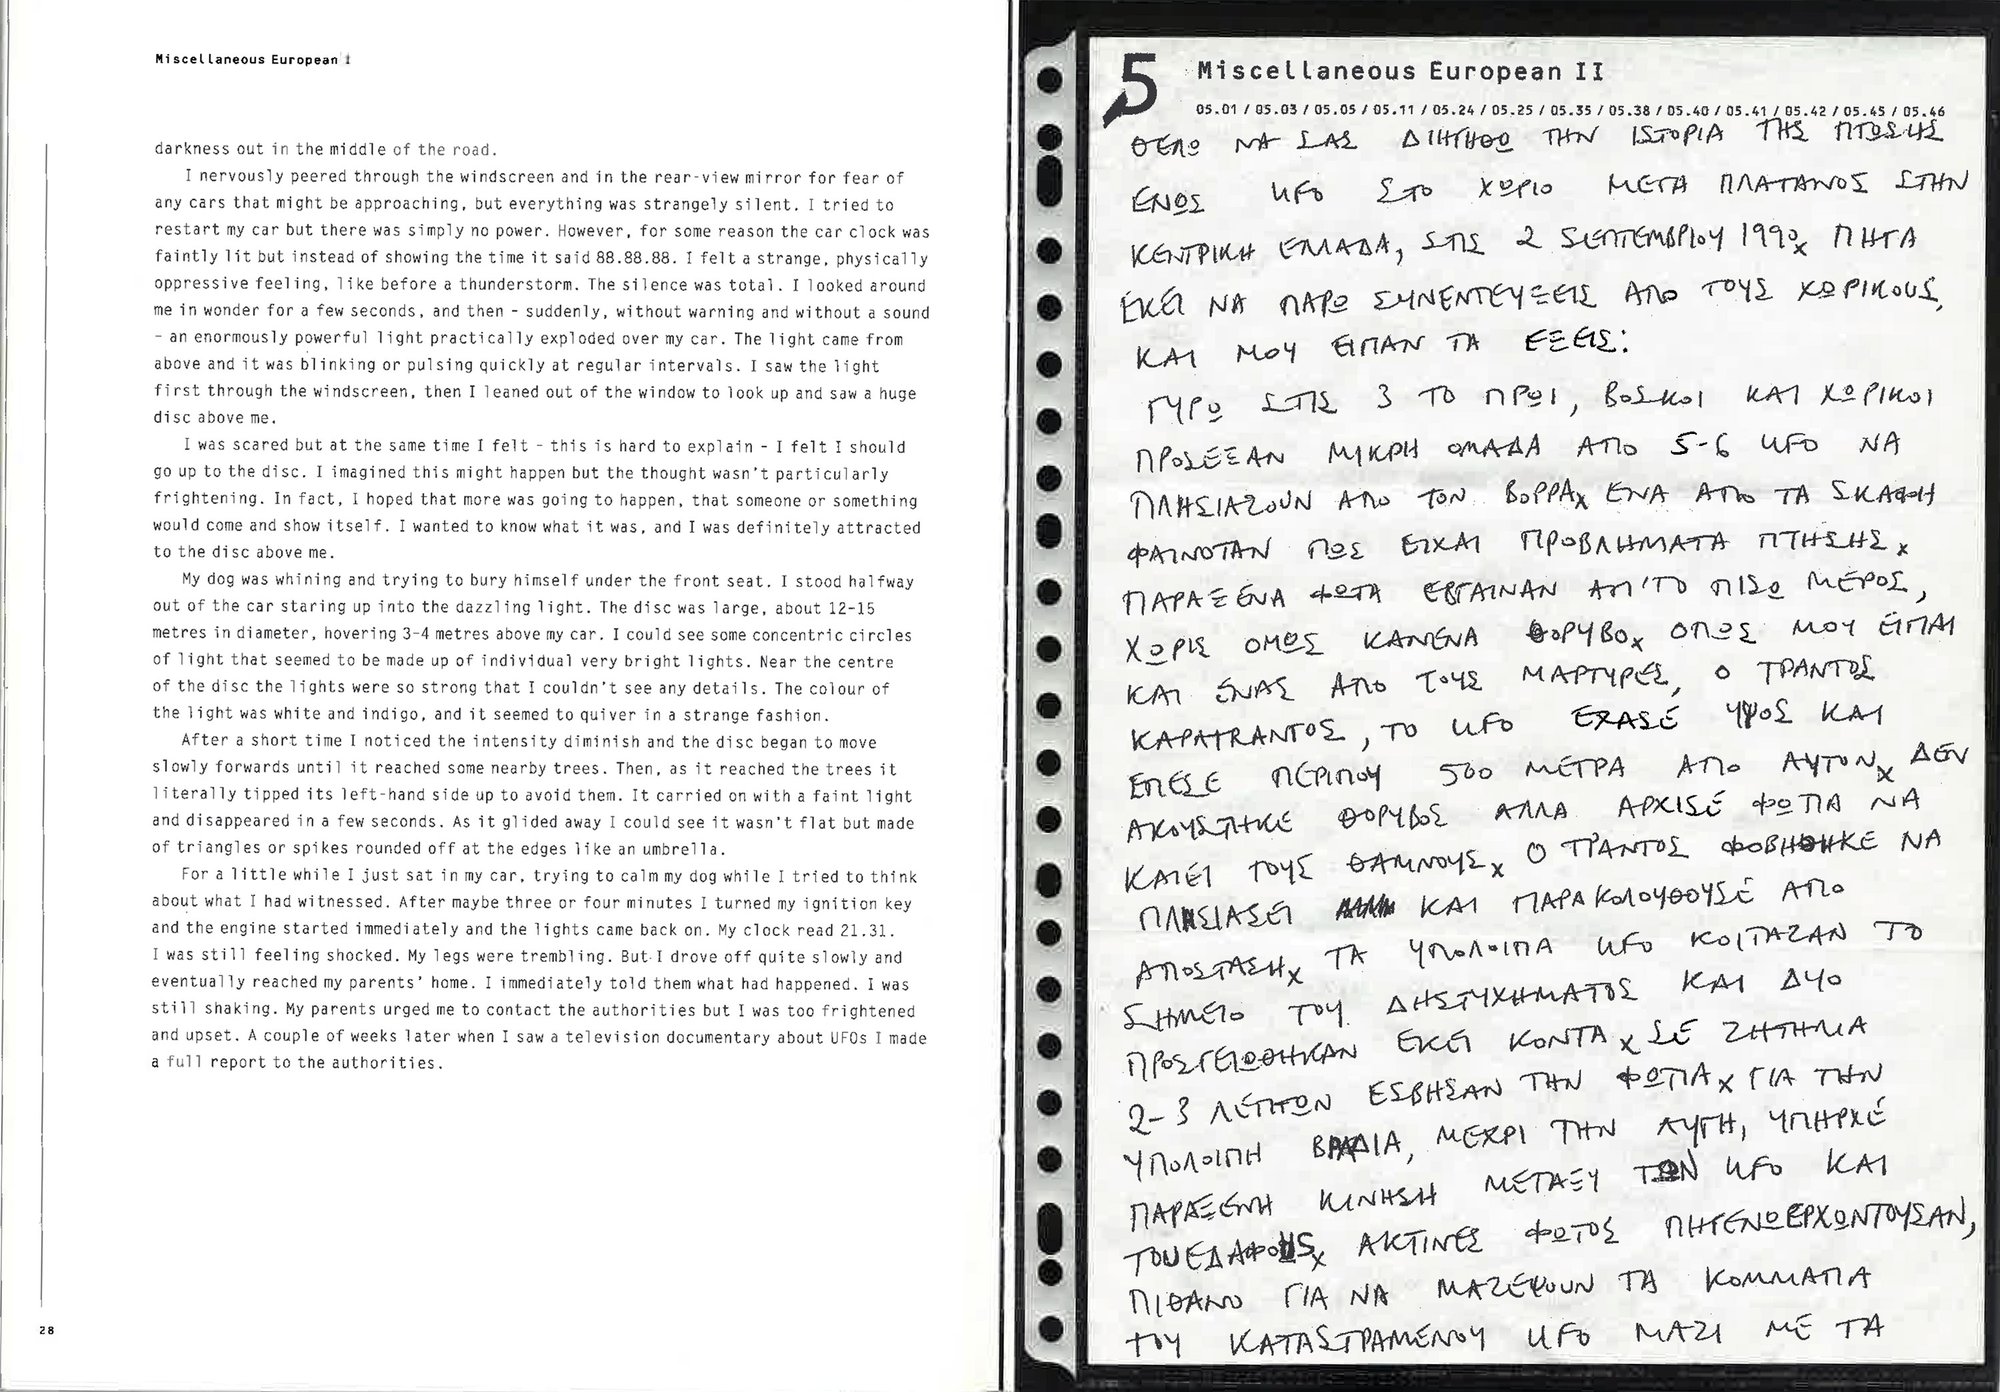 Miscellaneous European I
darkness out in the middle of the road.
I nervously peered through the windscreen and in the rear-view mirror for fear of
any cars that might be approaching, but everything was strangely silent. I tried to
restart my car but there was simply no power. However, for some reason the car clock was
faintly lit but instead of showing the time it said 88.88.88. I felt a strange, physically
oppressive feeling, like before a thunderstorm. The silence was total. I looked around
me in wonder for a few seconds, and then - suddenly, without warning and without a sound
- an enormously powerful light practically exploded over my car. The light came from
above and it was blinking or pulsing quickly at regular intervals. I saw the light
first through the windscreen, then I leaned out of the window to look up and saw a huge
disc above me.
I was scared but at the same time I felt - this is hard to explain - I felt I should
go up to the disc. I imagined this might happen but the thought wasn't particularly
frightening. In fact, I hoped that more was going to happen, that someone or something
would come and show itself. I wanted to know what it was, and I was definitely attracted
to the disc above me.
My dog was whining and trying to bury himself under the front seat. I stood halfway
out of the car staring up into the dazzling light. The disc was large, about 12-15
metres in diameter, hovering 3-4 metres above my car. I could see some concentric circles
of light that seemed to be made up of individual very bright lights. Near the centre
of the disc the lights were so strong that I couldn't see any details. The colour of
the light was white and indigo, and it seemed to quiver in a strange fashion.
After a short time I noticed the intensity diminish and the disc began to move
slowly forwards until it reached some nearby trees. Then, as it reached the trees it
literally tipped its left-hand side up to avoid them. It carried on with a faint light
and disappeared in a few seconds. As it glided away I could see it wasn't flat but made
of triangles or spikes rounded off at the edges like an umbrella.
For a little while I just sat in my car, trying to calm my dog while I tried to think
about what I had witnessed. After maybe three or four minutes I turned my ignition key
and the engine started immediately and the lights came back on. My clock read 21.31.
I was still feeling shocked. My legs were trembling. But I drove off quite slowly and
eventually reached my parents' home. I immediately told them what had happened. I was
still shaking. My parents urged me to contact the authorities but I was too frightened
and upset. A couple of weeks later when I saw a television documentary about UFOs I made
a full report to the authorities.
28
5
Miscellaneous European II
05.01 / 05.03 / 05.05 / 05.11 / 05.24 / 05.25 / 05.35 / 05.38 / 05.40 / 05.41 / 05.42 / 05.45 / 05.46
ΘΕΛΩ ΝΑ ΣΑΣ ΔΙΗΓΗΘΩ ΤΗΝ ΙΣΤΟΡΙΑ ΤΗΣ ΠΤΩΣΗΣ
ΕΝΩΣ UFO ΣΤΟ ΧΩΡΙΟ ΜΕΓΑ ΠΛΑΤΑΝΟΣ ΣΤΗΝ
ΚΕΝΤΡΙΚΗ ΕΛΛΑΔΑ, ΣΤΙΣ 2 SΕΠΤΕΜΒΡΙΟΥ 1990x ΠΗΓΑ
ΕΚΕΙ ΝΑ ΠΑΡΩ ΣΥΝΕΝΤΕΥΞΕΙΣ ΑΠΟ ΤΟΥΣ ΧΩΡΙΚΟUΣ,
ΚΑΙ ΜΟΥ ΕΙΠΑΝ ΤΑ ΕΞΕΙΣ:
ΓΥΡΩ ΣΤΙΣ 3 ΤΟ ΠΡΩΙ, ΒΟΣΚΟΙ ΚΑΙ ΧΩΡΙΚΟΙ
ΠΡΟΣΕΞΑΝ ΜΙΚΡΗ ΟΜΑΔΑ ΑΠΟ 5-6 UFO ΝΑ
ΠΛΗΣΙΑΖΟUΝ ΑΠΟ ΤΟΝ ΒΟΡΡΑx ΕΝΑ ΑΠΟ ΤΑ ΣΚΑΦΗ
ΦΑΙΝΟΤΑΝ ΠΩΣ ΕΙΧΑΙ ΠΡΟΒΛΗΜΑΤΑ ΠΤΗΣΗΣx
ΠΑΡΑΞΕΝΑ ΦΩΤΑ ΕΒΓΑΙΝΑΝ ΑΠ'ΤΟ ΠΙΣΩ ΜΕΡΟΣ,
ΧΩΡΙΣ ΟΜΩΣ ΚΑΝΕΝΑ ΘΟΡΥΒΟx ΟΠΩΣ ΜΟΥ ΕΙΠΑΙ
ΚΑΙ ΕΝΑΣ ΑΠΟ ΤΟΥΣ ΜΑΡΤΥΡΕΣ, Ο ΤΡΑΝΤΟΣ
ΚΑΡΑΤRΑΝΤΟΣ, ΤΟ UFO ΕΧΑΣΕ ΥΨΟΣ ΚΑΙ
ΕΠΕΣΕ ΠΕΡΙΠΟΥ 500 ΜΕΤΡΑ ΑΠΟ ΑΥΤΟΝx ΔΕΝ
ΑΚΟΥΣΤΗΚΕ ΘΟΡΥΒΟΣ ΑΛΛΑ ΑΡΧΙΣΕ ΦΩΤΙΑ ΝΑ
ΚΑΙΕΙ ΤΟΥΣ ΘΑΜΝΟΥΣx Ο ΤΡΑΝΤΟΣ ΦΟΒΗΘΗΚΕ ΝΑ
ΠΛΗΣΙΑΣΕΙ ΚΑΙ ΠΑΡΑΚΟΛΟΥΘΟΥΣΕ ΑΠΟ
ΑΠΟΣΤΑΣΗx ΤΑ ΥΠΟΛΟΙΠΑ UFO ΚΟΙΤΑΖΑΝ ΤΟ
ΣΗΜΕΙΟ ΤΟΥ ΔΗΣΤΥΧΗΜΑΤΟΣ ΚΑΙ ΔΥΟ
ΠΡΟΣΓΕΙΩΘΗΚΑΝ ΕΚΕΙ ΚΟΝΤΑx ΣΕ ΖΗΤΗΜΑ
2-3 ΛΕΠΤΩΝ ΕΣΒΗΣΑΝ ΤΗΝ ΦΩΤΙΑx ΓΙΑ ΤΗΝ
ΥΠΟΛΟΙΠΗ ΒΡΑΔΙΑ, ΜΕΧΡΙ ΤΗΝ ΑΥΓΗ, ΥΠΗΡΧΕ
ΠΑΡΑΞΕΝΗ ΚΙΝΗΣΗ ΜΕΤΑΞΥ ΤΩΝ UFO ΚΑΙ
ΤΟUΕΔΑΦΟUSx ΑΚΤΙΝΕΣ ΦΩΤΟΣ ΠΗΓΕΝΩΕΡΧΩΝΤΟΥΣΑΝ,
ΠΙΘΑΝΟ ΓΙΑ ΝΑ ΜΑΖΕΨΟUΝ ΤΑ ΚΟΜΜΑΤΙΑ
ΤΟΥ ΚΑΤΑSΤΡΑΜΕΝΟΥ UFO ΜΑΖΙ ΜΕ ΤΑ